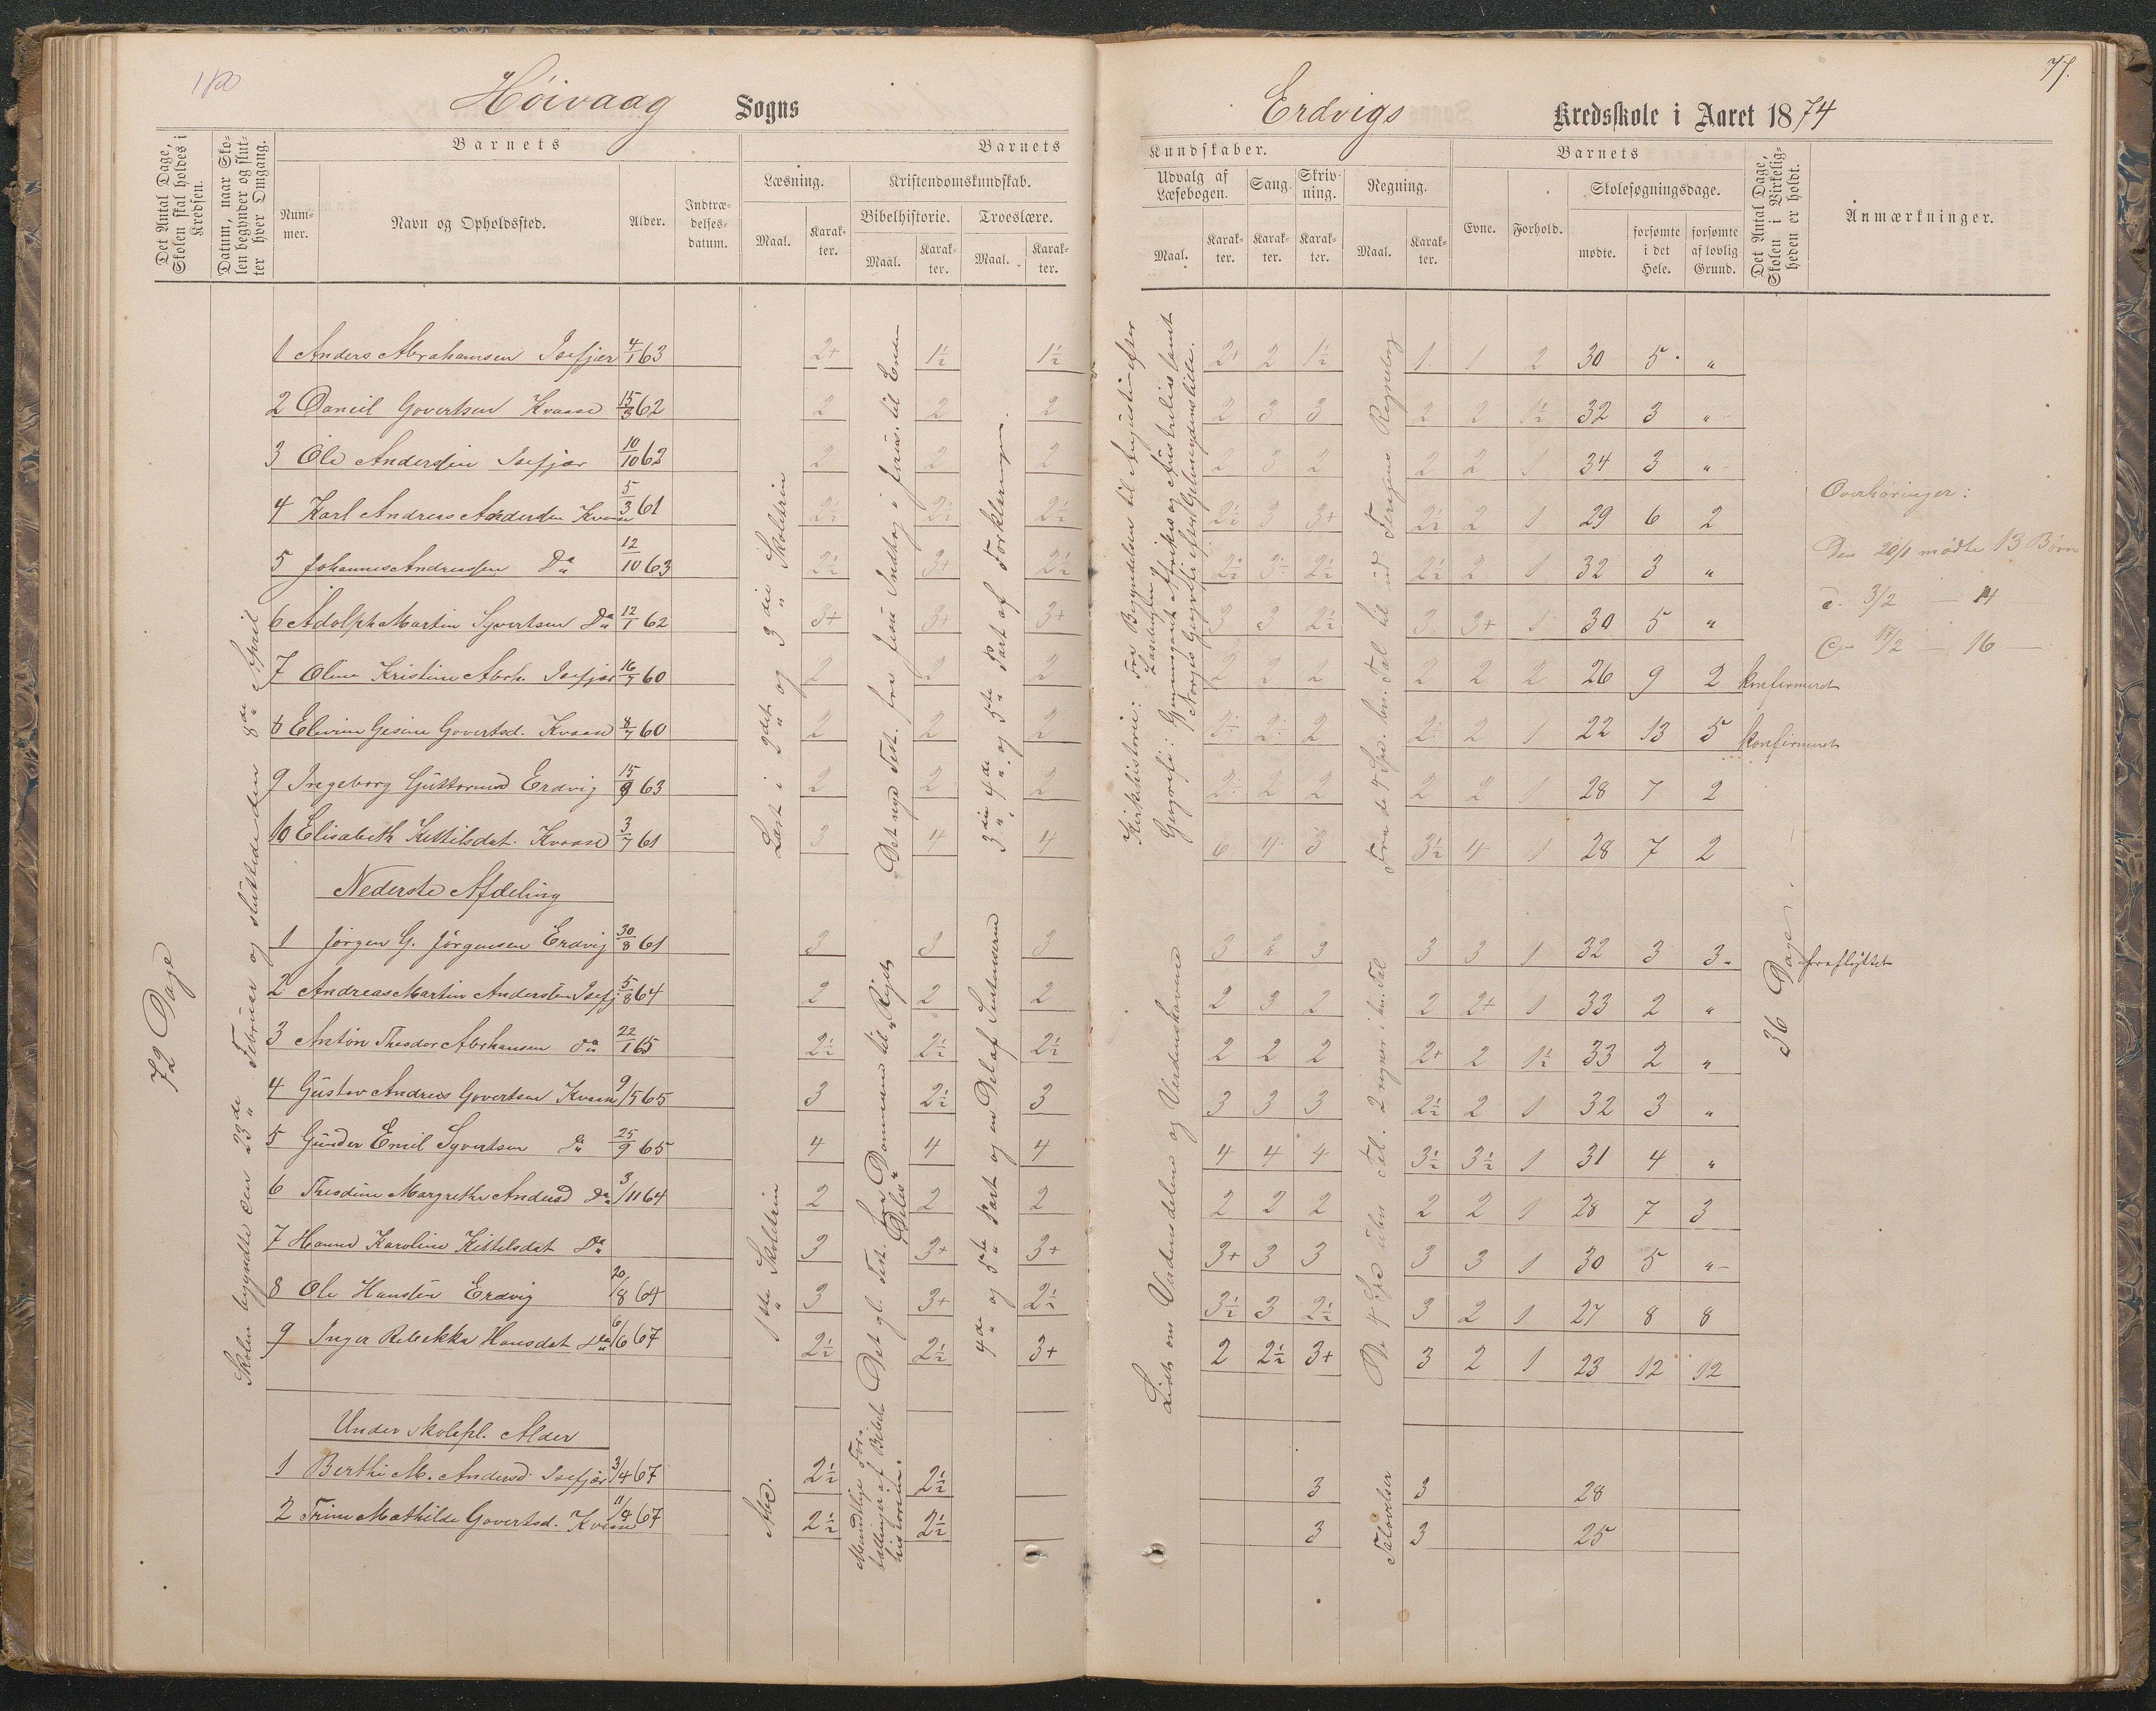 180
77.
Høivaag Sogns
Erdvigs Kredsskole i Aaret 1874
Det Antal Dage, Skolen skal holdes i Kredsen.
Datum, naar Skolen begynder og slutter hver Omgang.
Barnets
Nummer.
Navn og Opholdssted.
Alder.
Indtrædelsesdatum.
Barnets
Læsning.
Maal.
Karakter.
Kristendomskundskab.
Bibelhistorie.
Maal.
Karakter.
Troeslære.
Maal.
Karakter.
Kundskaber.
Udvalg af Læsebogen.
Maal.
Karakter.
Sang.
Karakter.
Skrivning.
Karakter.
Regning.
Maal.
Karakter.
Barnets
Evne.
Forhold.
Skolesøgningsdage.
mødte.
forsømte i det Hele.
forsømte af lovlig Grund.
Det Antal Dage, Skolen i Virkeligheden er holdt.
Anmærkninger.
72 Dage
Skolen begyndte den 23de Februar og sluttede den 8de April
Læst i 2det og 3die Skoletrin
Det nye Test. fra Jesu Indtog i Jerus. til Enden
3die, 4de og 5te Part af Forklaringen.
Kirkehistorie: Fra Begyndelsen til Augustin efter Læsebogen
Geografi: Gjennemgaaet Afrika og Australien samt Norges Geografi efter Geelmuydens lille.
Fra de 4 Spe. hm. Tal til ud Feragens Regnebog
1 Anders Abrahamsen Isefjær 4/1 63 2+ 1½ 1½ 2+ 2 1½ 1 1 2 30 5 "
2 Daneil Govertsen Kvaase 15/3 62 2 2 2 2 3 3 2 2 1½ 32 3 "
3 Ole Andersen Isefjær 10/10 62 2 2 2 2 3 2 2 2 1 34 3 "
4 Karl Andreas Andersen Kvaase 5/3 61 2½ 2½ 2½ 2½ 3 3+ 2½ 2 1 29 6 2
Overhøringer:
5 Johannes Andreassen Do 12/10 63 2½ 3+ 2½ 2½ 3½ 2½ 2½ 2 1 32 3 "
Den 20/1 mødte 13 Børn
6 Adolph Martin Syvertsen Do 12/1 62 3+ 3+ 3+ 3 3 2½ 3 3+ 1 30 5 "
d. 3/2 — 14
7 Oline Kristine Abrh. Isefjær 16/7 60 2 2 2 2 2 2 2 2 2 26 9 2 konfirmeret
17/2 — 16 —
8 Elevine Gesine Govertsd. Kvaase 8/7 60 2 2 2 2½ 2½ 2 2½ 2 1 22 13 5 konfirmeret
9 Ingeborg Guttormsd Erdvig 15/9 63 2 2 2 2½ 2 2 2 2 1 28 7 2
10 Elisabeth Kittelsdat. Kvaase 3/7 61 3 4 4 6 4 3 3½ 4 1 28 7 2
Nederste Afdeling
36 Dage.
1ste Skoletrin
Det gl. Test. fra Dommerne til "Rigets Deles"
4de og 5te Part og en Del af Sentenserne
Lidt om Verdensdelene og Verdenshavene
De 4 Spe. i hm. Tal. 2 regner i hm. Tal
1 Jørgen G. Jørgensen Erdvig 30/8 61 3 3 3 3 2 3 3 3 1 32 3 3 fraflyttet
2 Andreas Martin Andersen Isefj 5/8 64 2 2 2 2 3 2 2 2+ 1 33 2 "
3 Anton Theodor Abrhansen do 22/1 65 2½ 2½ 2½ 2 2 2 2+ 2 1½ 33 2 "
4 Gustav Andreas Govertsen Kvaase 9/5 65 3 2½ 3 3 3 3 2½ 2 1 32 3 "
5 Gunder Emil Syvertsen Do 25/9 65 4 4 4 4 4 4 3½ 3½ 1 31 4 "
6 Theodine Margrethe Andersd Do 3/11 64 2 2 2 2 2 2 2 2 1 28 7 3
7 Hanne Karoline Kittelsdat Do 3 3+ 3+ 3+ 3 3 3 3 1 30 5 "
8 Ole Hansen Erdvig 20/8 64 3 3+ 2½ 3½ 3 2½ 3 2 1 27 8 8
9 Inger Rebekka Hansdat Do 6/6 67 2½ 2½ 3+ 2 2½ 3+ 3 2 1 23 12 12
Under skolepl. Alder
Abc.
Mundtlige Fortællinger af Bibelhistorien.
Taløvelser
1 Berthe M. Andersd. Isefjær 3/4 67 2½ 2½ 3 3 28
2 Trine Mathilde Govertsd. Kvaase 11/8 67 2½ 2½ 3 3 25